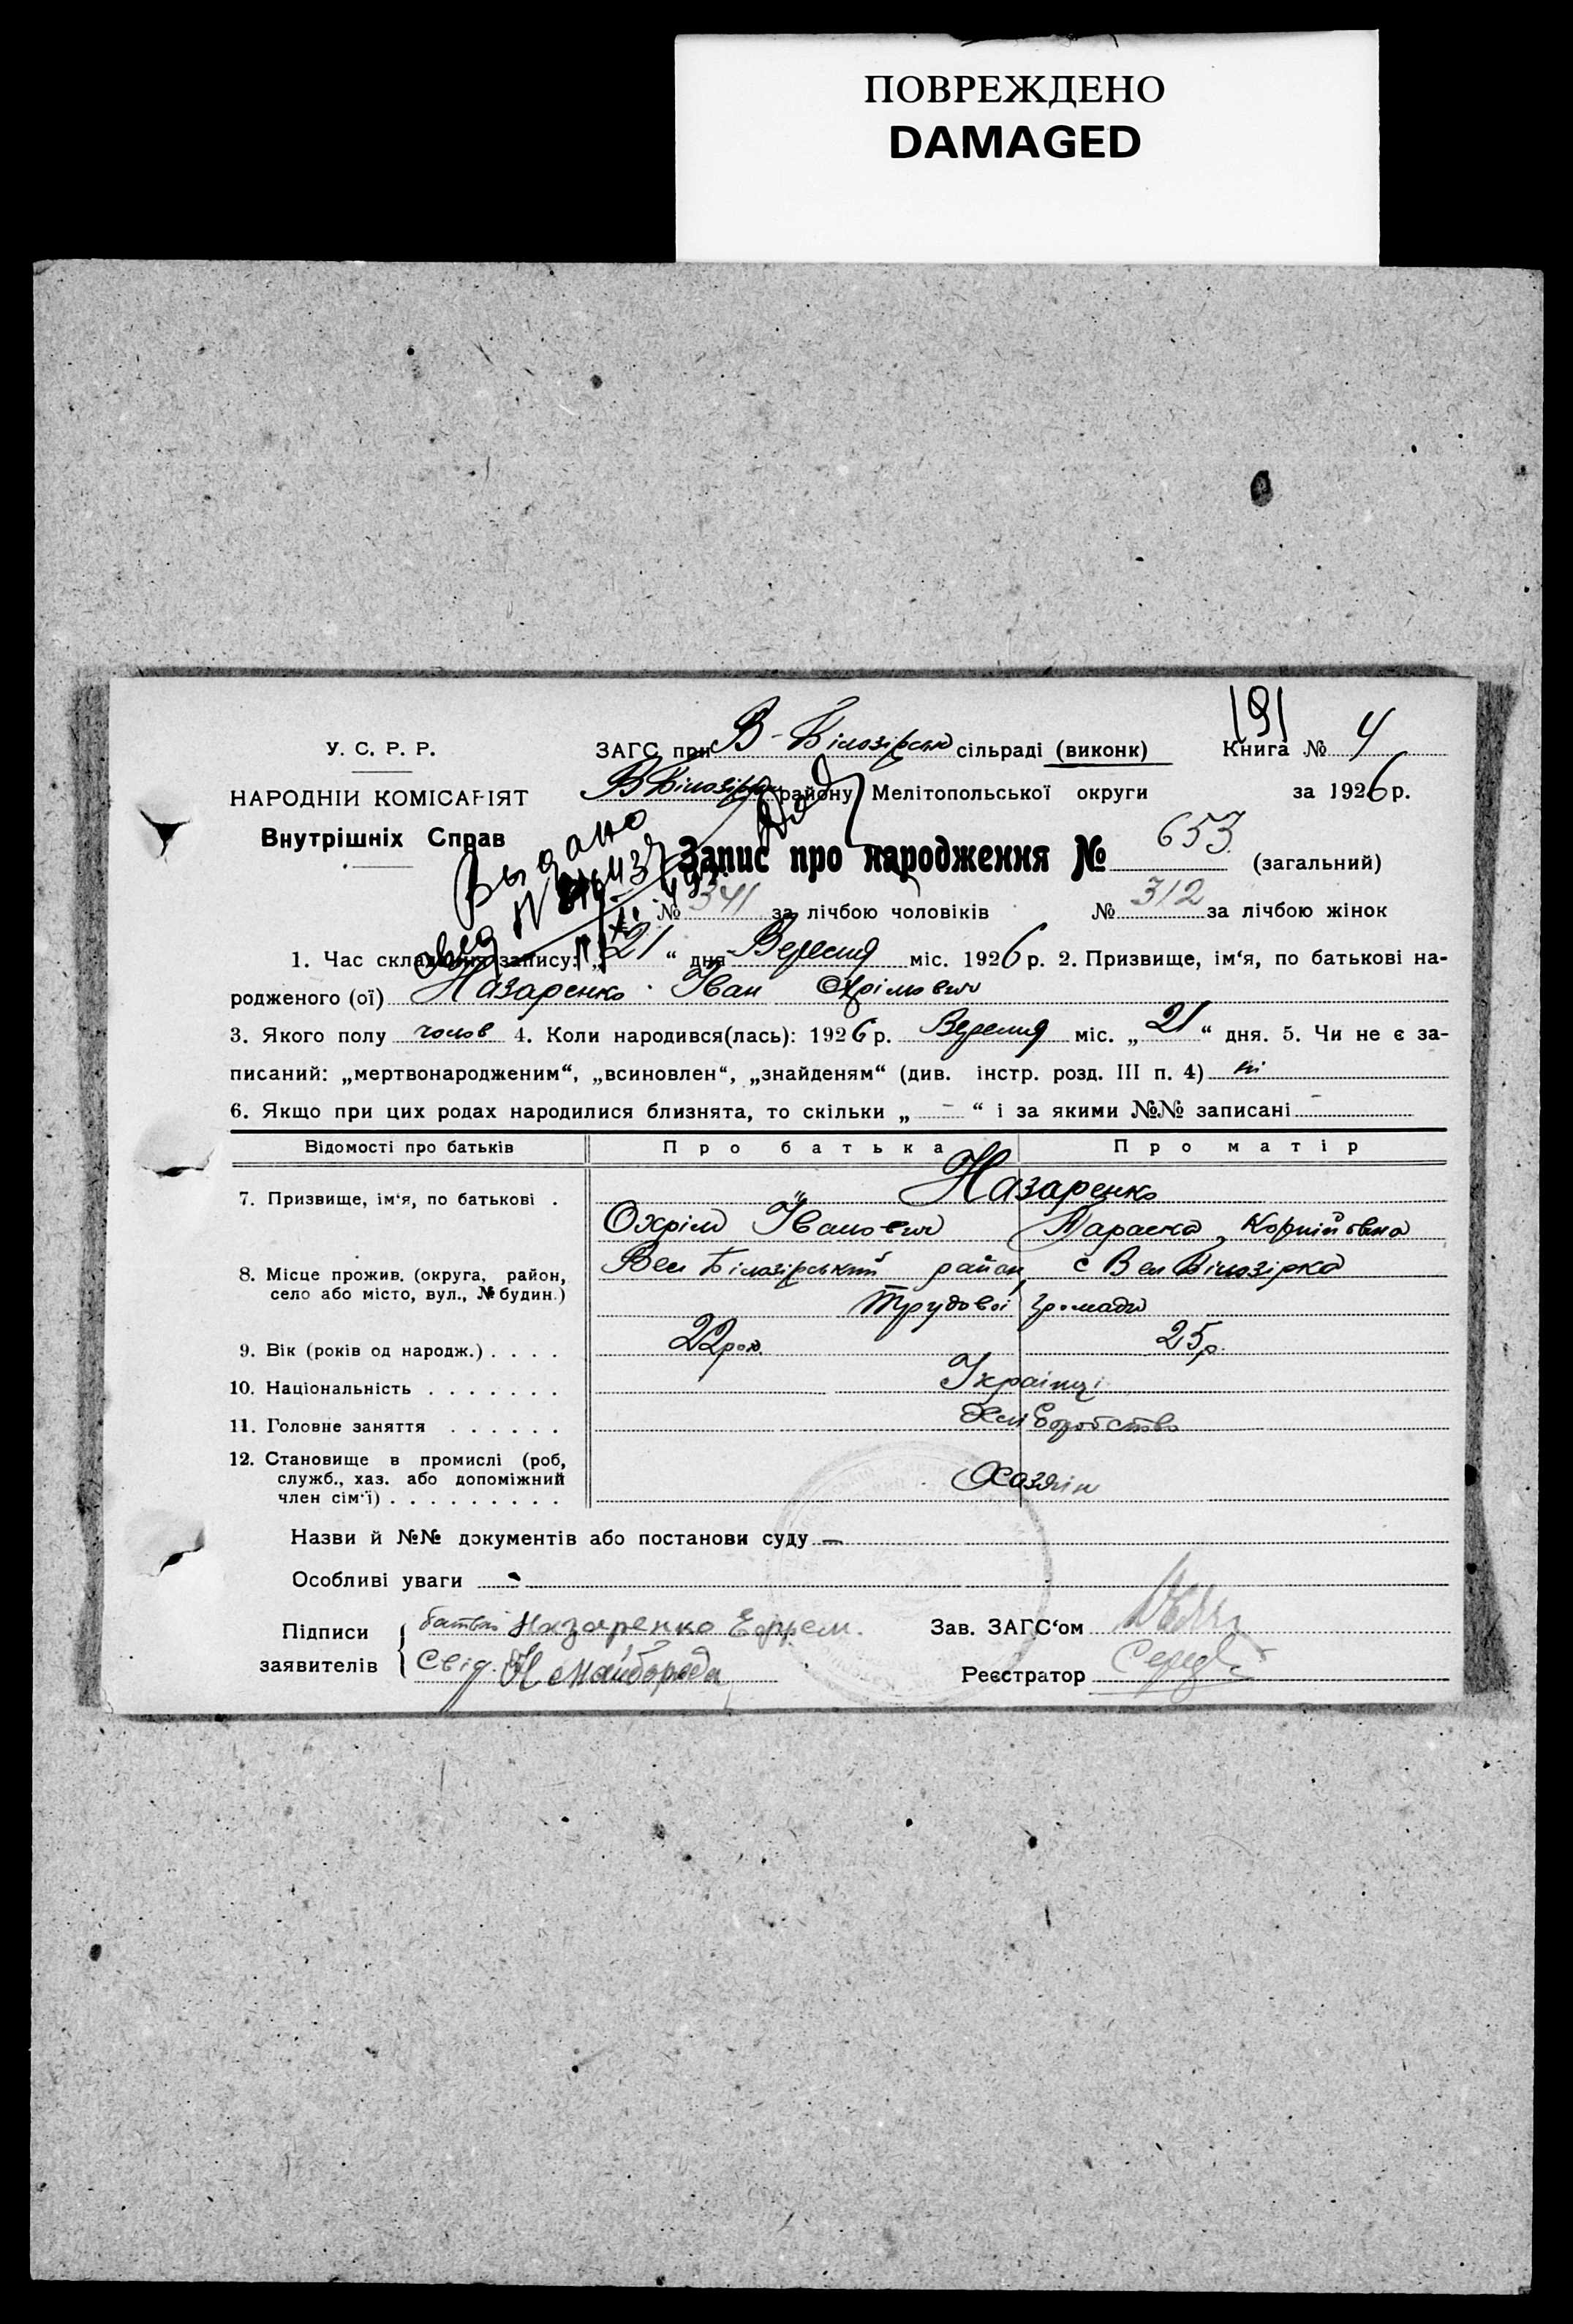 ПОВРЕЖДЕНО
DAMAGED
191
У. С. Р. Р.
ЗАГС при В-Білозірськ сільраді (виконк)
Книга № 4
НАРОДНІЙ КОМІСАРІЯТ
В Білозірськ району Мелітопольської округи
за 1926 р.
Внутрішніх Справ
Выдано
Запис про народження № 653 (загальний)
№ 341 за лічбою чоловіків
№ 312 за лічбою жінок
1. Час складання запису: „21“ дня Вересня міс. 1926 р. 2. Призвище, ім‘я, по батькові на-
родженого (ої) Назаренко Іван Охрімович
3. Якого полу чолов 4. Коли народився(лась): 1926 р. Вересня міс. „21“ дня. 5. Чи не є за-
писаний: „мертвонародженим“, „всиновлен“, „знайденям“ (див. інстр. розд. III п. 4) ні
6. Якщо при цих родах народилися близнята, то скільки „ - “ і за якими №№ записані -
Відомості про батьків
Про батька
Про матір
7. Призвище, ім‘я, по батькові .
Назаренко
Охрім Іванович
Параска Корнійовна
8. Місце прожив. (округа, район,
село або місто, вул., № будин.)
Вел Білозірський район с Вел Білозірка
Трудової громади
9. Вік (років од народж.) . . . .
22 рок.
25 р.
10. Національність . . . . . . .
Українці
11. Головне заняття . . . . . .
Хліборобство
12. Становище в промислі (роб,
служб., хаз. або допоміжний
член сім‘ї) . . . . . . . . .
Хозяїн
Назви й №№ документів або постанови суду —
Особливі уваги -
Підписи
заявителів
батько Назаренко Ефрем.
Свід. Н Майборода
Зав. ЗАГС‘ом
Реєстратор